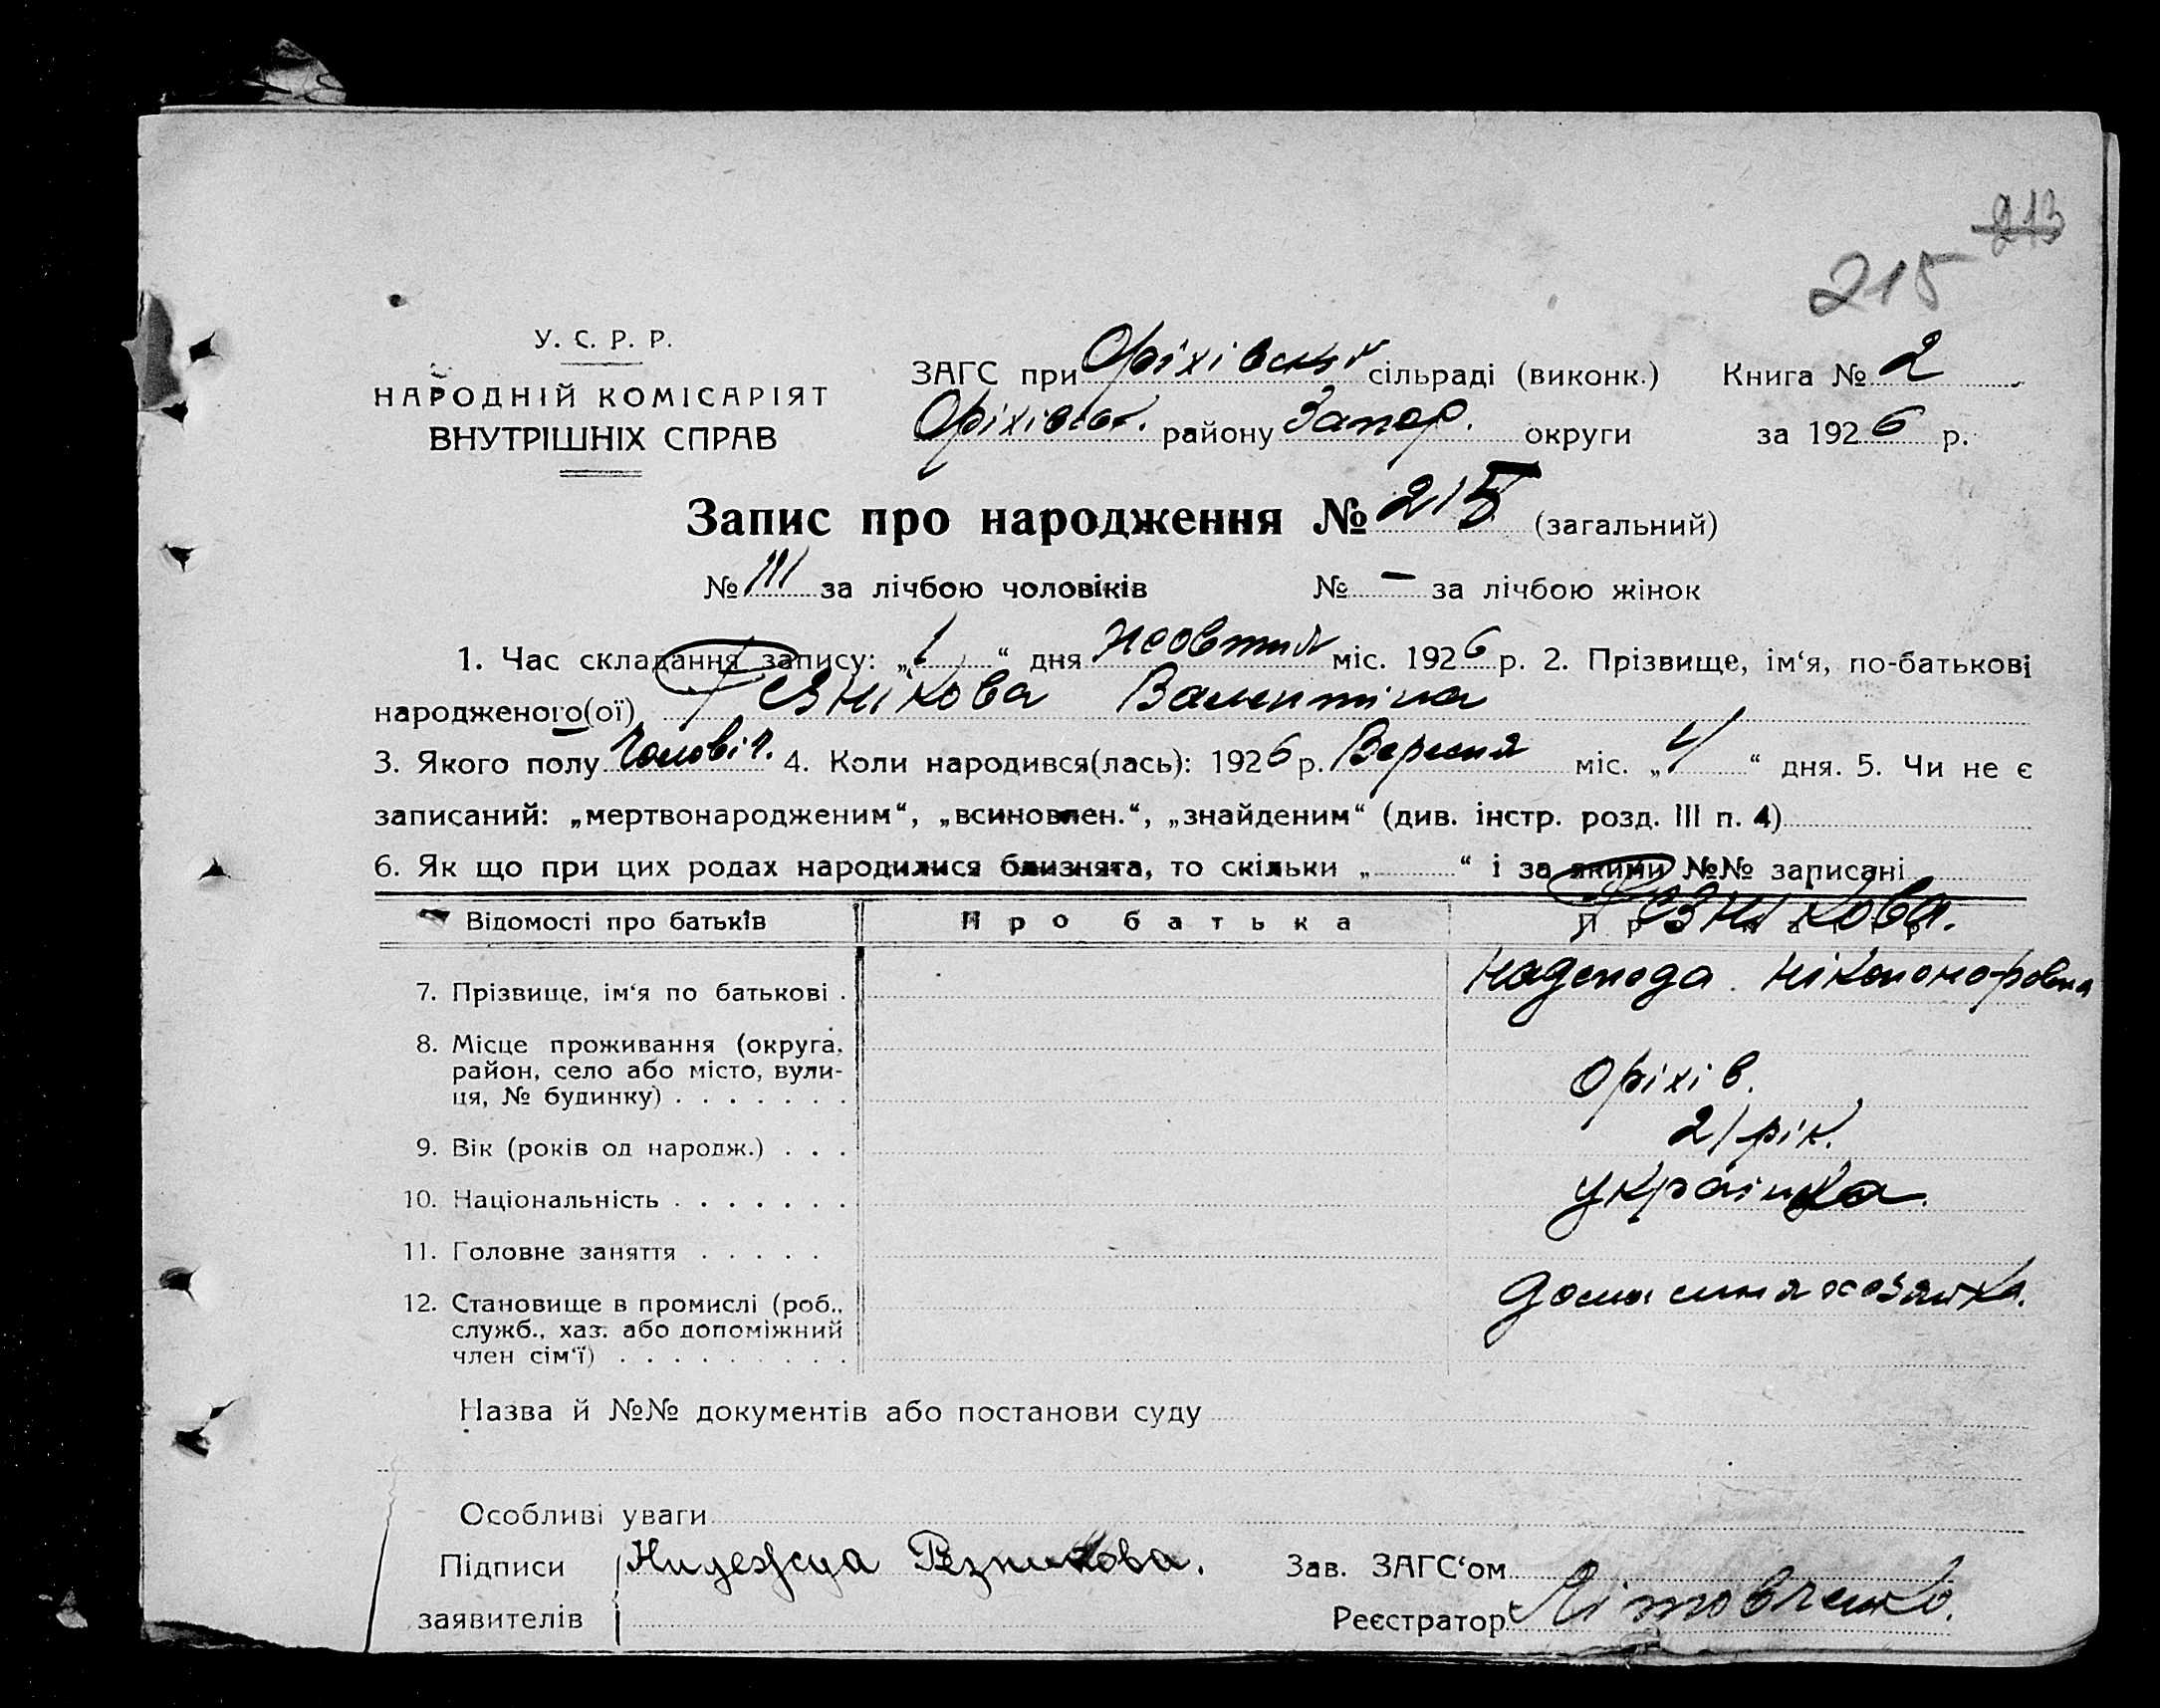 213
215
У. С. Р. Р.
НАРОДНІЙ КОМІСАРІЯТ
ВНУТРІШНІХ СПРАВ
ЗАГС при Оріхівській сільраді (виконк.) Книга № 2
Оріхівськ. району Запор. округи за 1926 р.
Запис про народження № 215 (загальний)
№ 111 за лічбою чоловіків № – за лічбою жінок
1. Час складання запису: „1“ дня Жовтня міс. 1926 р. 2. Прізвище, ім‘я, по-батькові
народженого(ої) Резнікова Валентіна
3. Якого полу Чоловіч. 4. Коли народився(лась): 1926 р. Вересня міс. „4“ дня. 5. Чи не є
записаний: „мертвонародженим“, „всиновлен.“, „знайденим“ (див. інстр. розд. III п. 4)
6. Як що при цих родах народилися близнята, то скільки „ “ і за якими №№ записані
Відомості про батьків Про батька Про матір
7. Прізвище, ім‘я по батькові . Резнікова. Надежда
8. Місце проживання (округа, район, село або місто, вули-ця, № будинку) . . . . . . . Оріхів.
9. Вік (років од народж.) . . . 21 рік.
10. Національність . . . . . . . українка.
11. Головне заняття . . . . .
12. Становище в промислі (роб., служб., хаз. або допоміжний член сім‘ї) . . . . . . . . . хозяйка.
Назва й №№ документів або постанови суду
Особливі уваги
Підписи Надежда Резникова. Зав. ЗАГС‘ом
заявителів Реєстратор Літовченко.